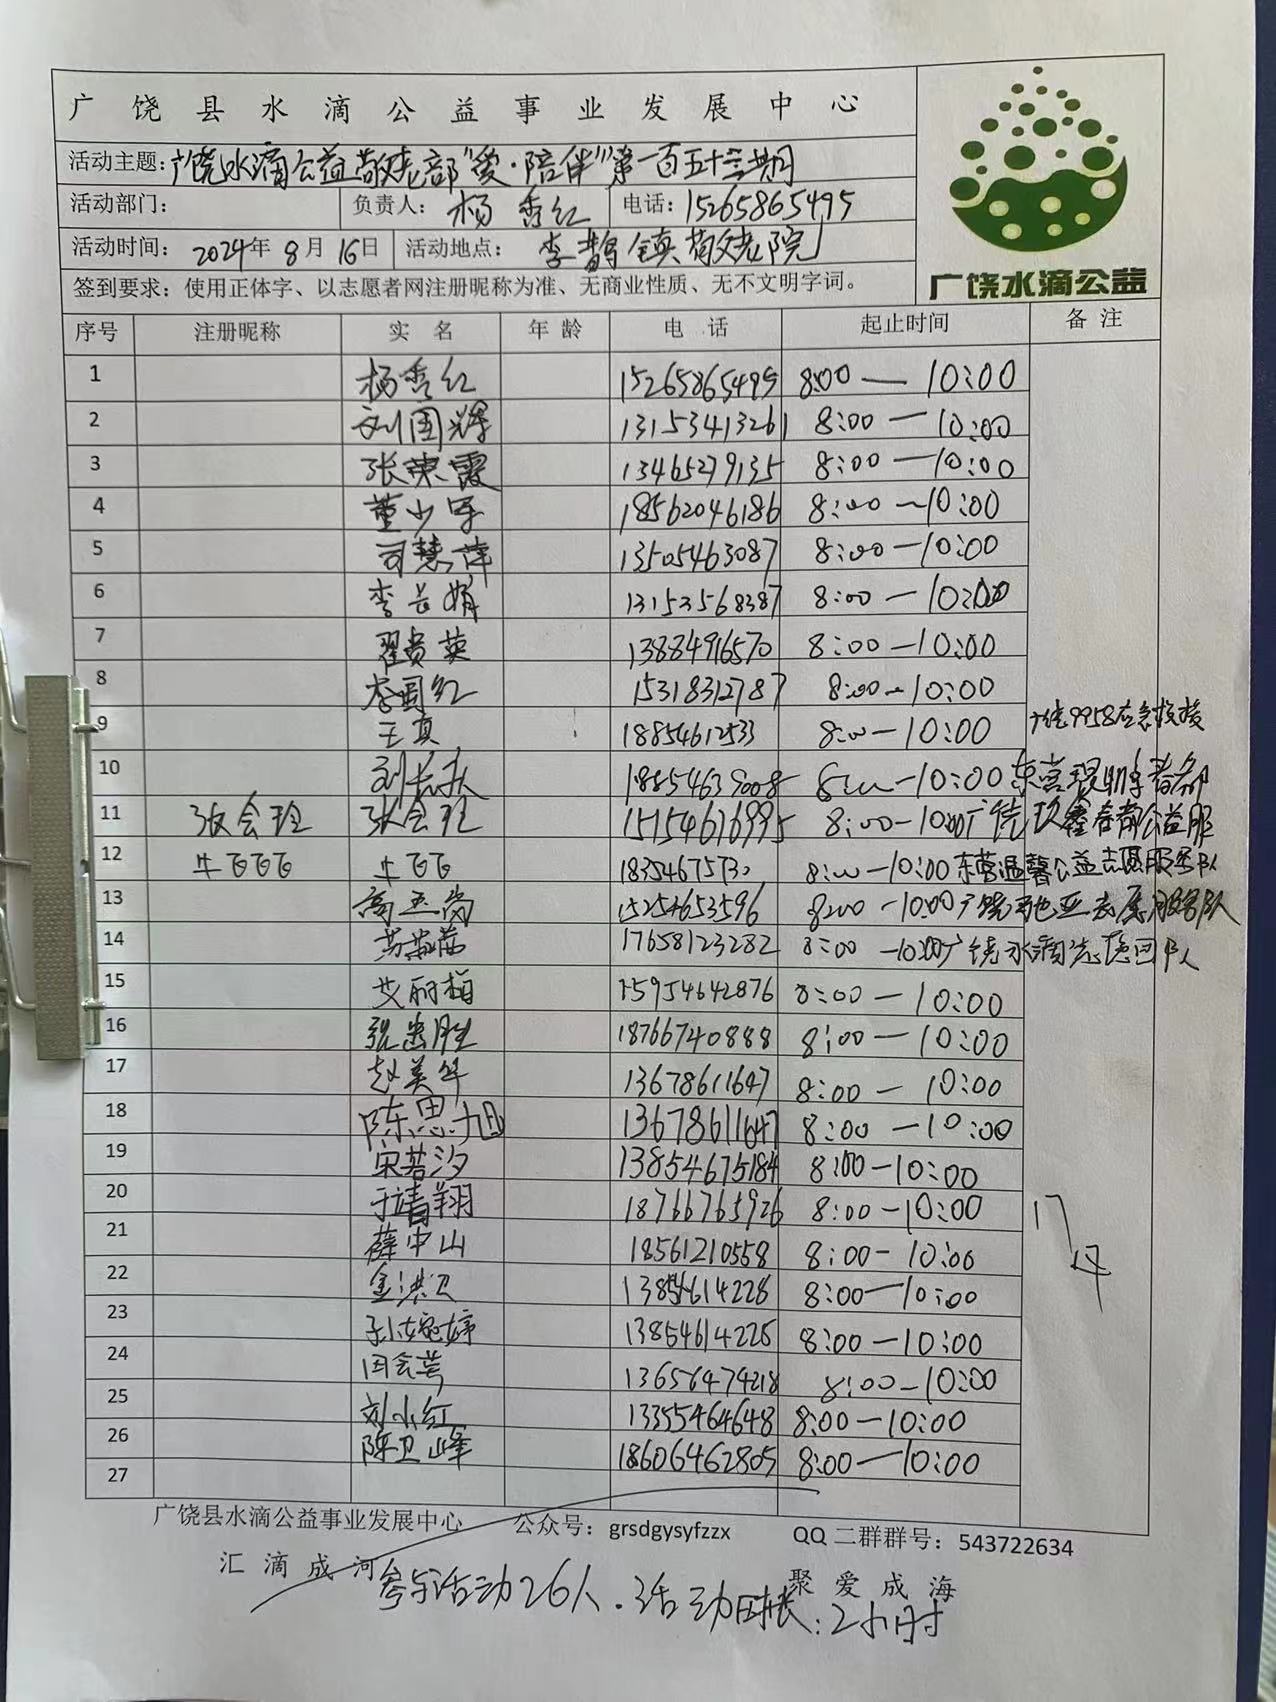 广饶县水滴公益事业发展中心
广饶水滴公益
活动主题：广饶水滴公益敬老部"爱·陪伴"第一百五十三期
活动部门： 负责人：杨秀红 电话：15265865495
活动时间：2024年8月16日 活动地点：李鹊镇敬老院
签到要求：使用正体字、以志愿者网注册昵称为准、无商业性质、无不文明字词。
序号 注册昵称 实名 年龄 电话 起止时间 备注
1 杨秀红 15265865495 8:00—10:00
2 刘国辉 13153413261 8:00—10:00
3 张荣霞 13465279135 8:00—10:00
4 董少军 18562046186 8:00—10:00
5 司慧萍 13505463087 8:00—10:00
6 李长娟 13153568387 8:00—10:00
7 翟贵英 13884916570 8:00—10:00
8 李国红 15318312787 8:00—10:00
9 王真 18854612533 8:00—10:00 广饶9958应急救援
10 18854639008 8:00—10:00
11 张会玲 张会玲 15154616995 8:00—10:00 广饶玖鑫春韵公益服
12 牛飞飞飞 牛飞飞 18354675730 8:00—10:00 东营温馨公益志愿服务队
13 高玉岗 15254653596 8:00—10:00
14 17658123282 8:00—10:00
15 艾丽梅 15954642876 8:00—10:00
16 张忠胜 18766740888 8:00—10:00
17 赵美华 13678611647 8:00—10:00
18 陈思旭 13678611647 8:00—10:00
19 宋若汐 13854675184 8:00—10:00
20 于靖翔 18766765926 8:00—10:00
21 薛中山 18561210558 8:00—10:00
22 金洪卫 13854614228 8:00—10:00
23 孙婉婷 13854614228 8:00—10:00
24 田会芳 13656474218 8:00—10:00
25 刘小红 13355464648 8:00—10:00
26 陈卫峰 18606462805 8:00—10:00
27
广饶县水滴公益事业发展中心 公众号：grsdgysyfzzx QQ二群群号：543722634
汇滴成河 聚爱成海
参与活动26人．活动时长：2小时